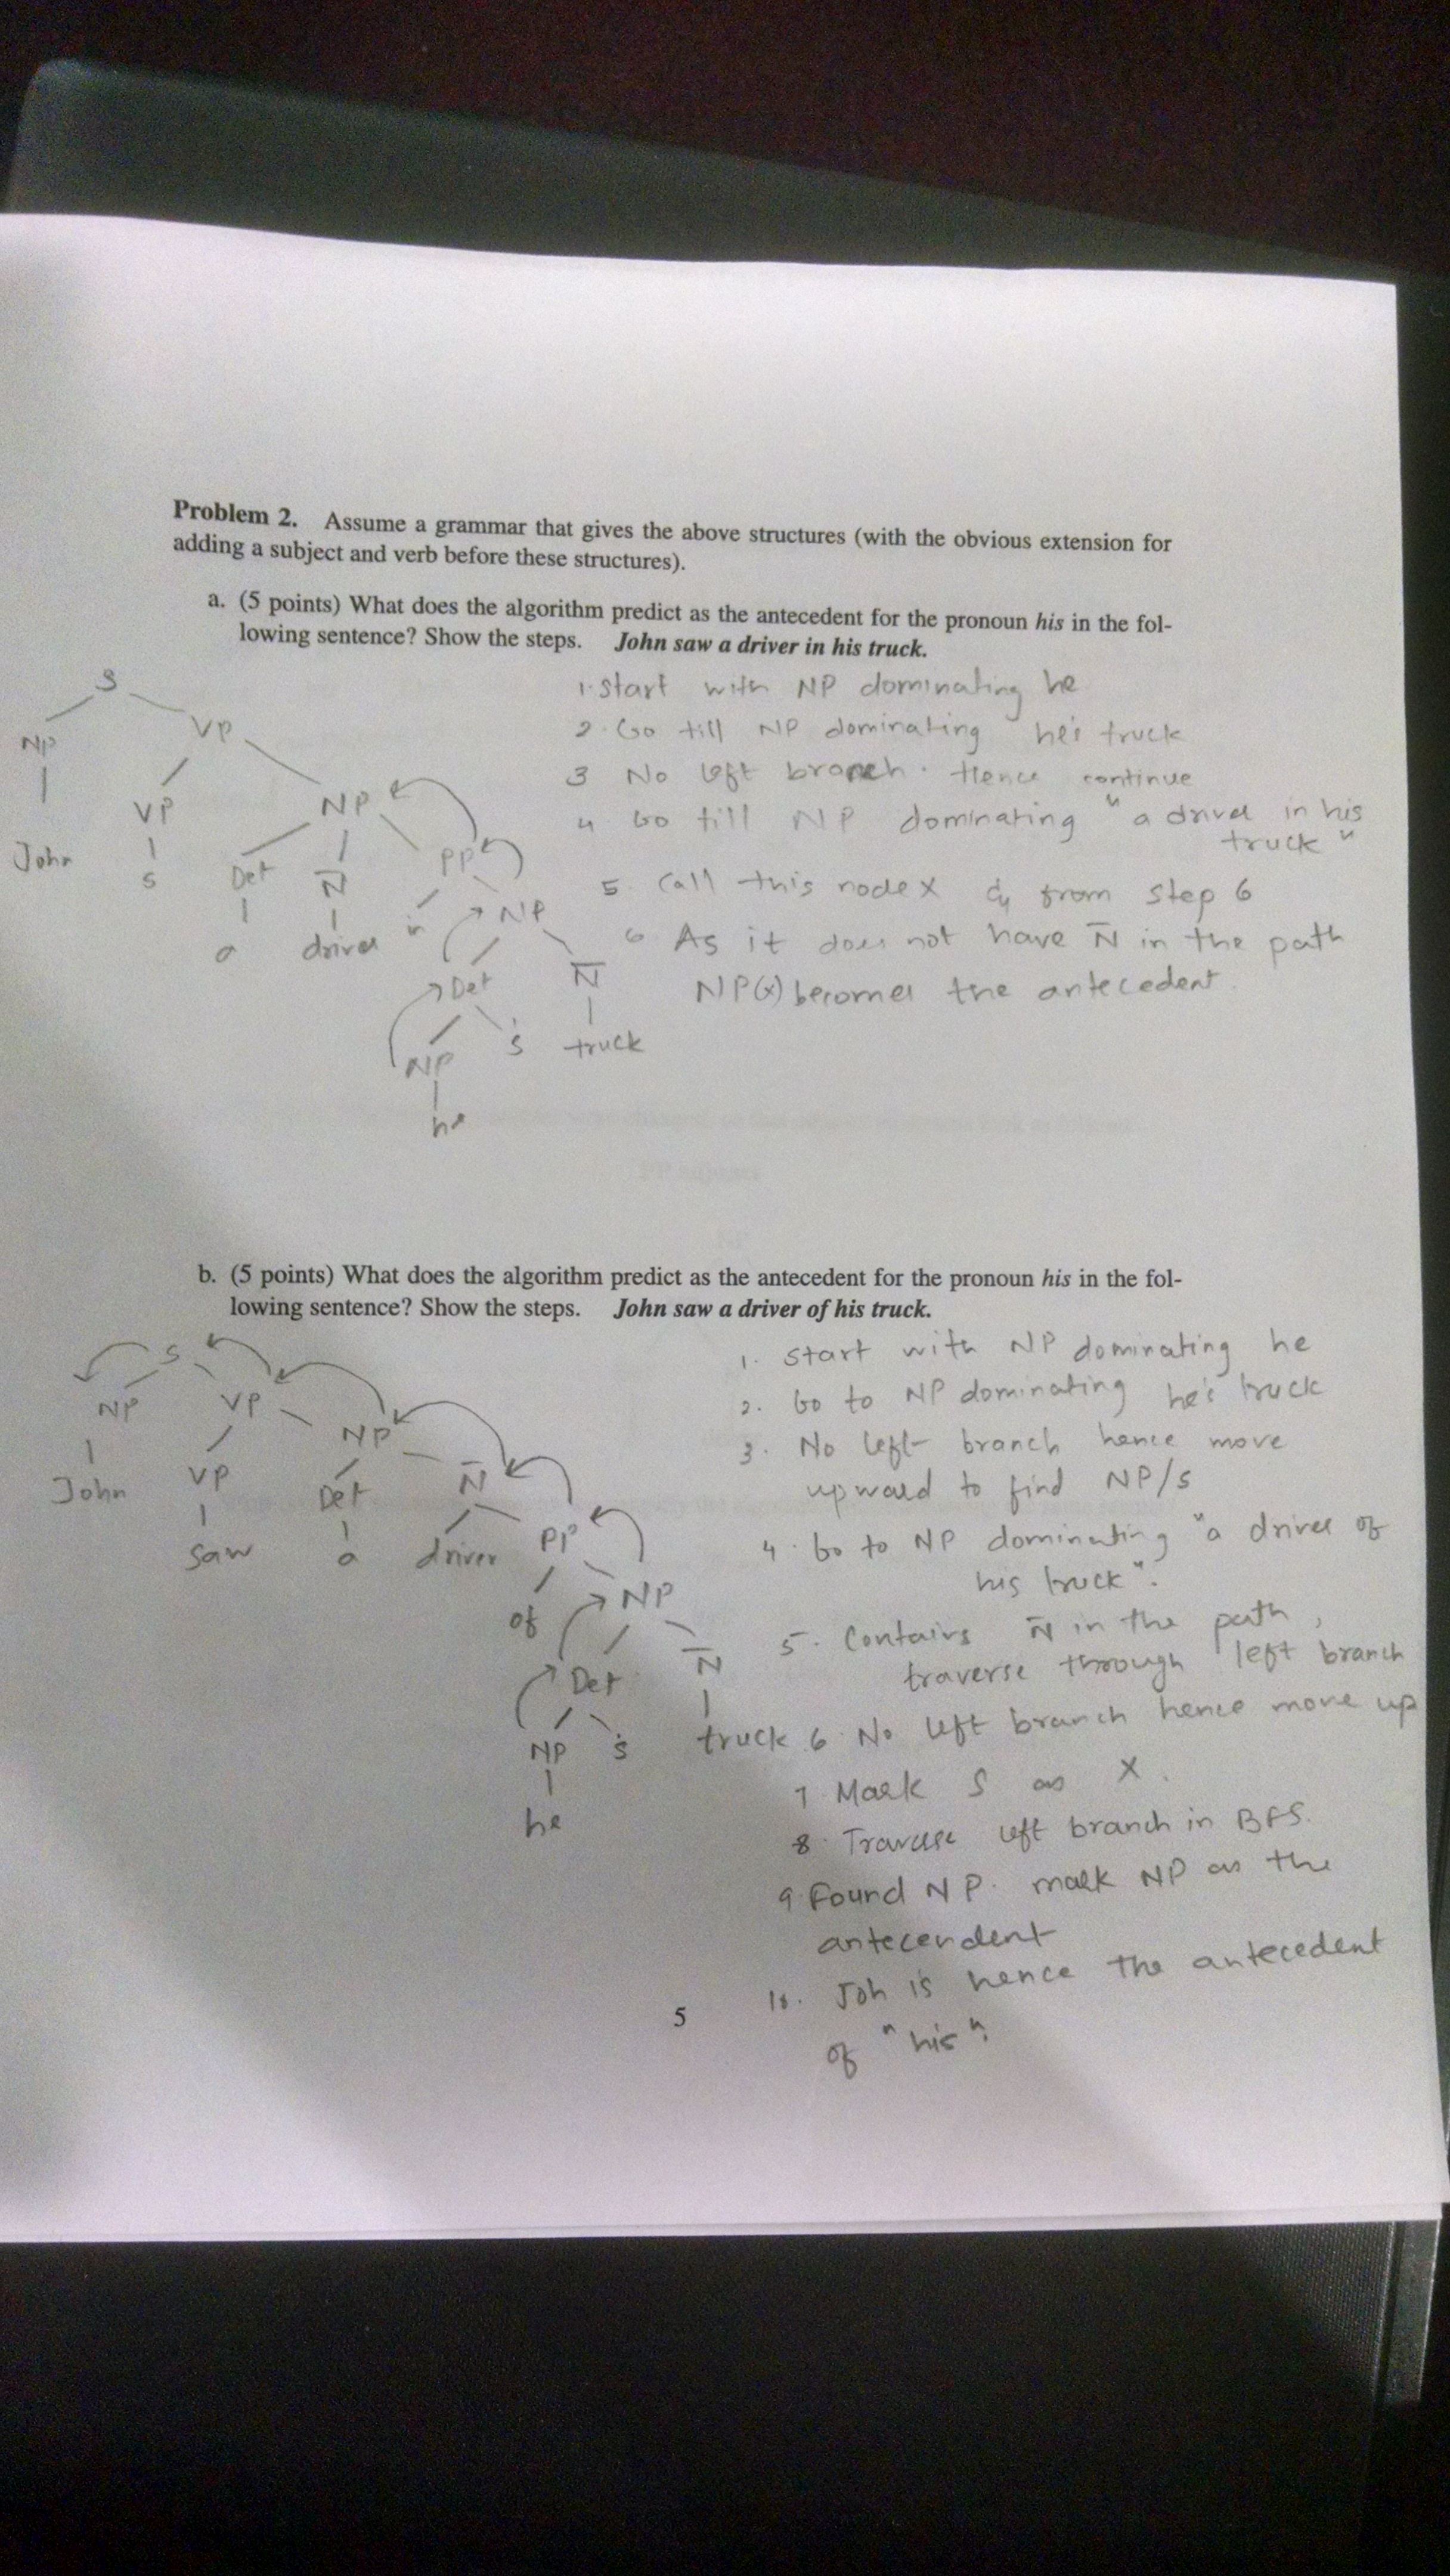 Problem 2. Assume a grammar that gives the above structures (with the obvious extension for
adding a subject and verb before these structures).
a. (5 points) What does the algorithm predict as the antecedent for the pronoun his in the fol-
lowing sentence? Show the steps. John saw a driver in his truck.
S
NP VP
John
VP NP
s
Det N̄ PP
a driver in NP
Det N̄
NP 's truck
he
1. Start with NP dominating he
2. Go till NP dominating he's truck
3 No left branch. Hence continue
4 Go till NP dominating "a driver in his
truck"
5. Call this node X & from step 6
6 As it does not have N̄ in the path
NP(x) becomes the antecedent.
b. (5 points) What does the algorithm predict as the antecedent for the pronoun his in the fol-
lowing sentence? Show the steps. John saw a driver of his truck.
S
NP VP
John
VP NP
saw
Det N̄
a driver PP
of NP
Det N̄
NP 's truck
he
1. Start with NP dominating he
2. Go to NP dominating he's truck
3. No left branch hence move
upward to find NP/S
4. Go to NP dominating "a driver of
his truck".
5. Contains N̄ in the path,
traverse through left branch
6. No left branch hence move up
7 Mark S as X.
8. Traverse left branch in BFS.
9. Found NP. mark NP as the
antecendent
10. Joh is hence the antecedent
of "his".
5